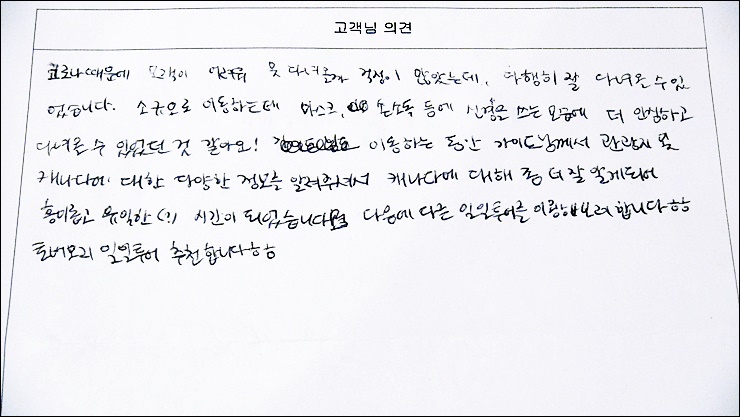 고객님 의견
코로나때문에 모객이 못 다녀올까 걱정이 많았는데, 다행히 잘 다녀올 수 있
었습니다. 소규모로 이동하는데 마스크, 손소독 등에 신경을 쓰는 모습에 더 안심하고
다녀올 수 있었던 것 같아요! 이동하는 동안 가이드님께서 관광지 및
캐나다에 대한 다양한 정보를 알려주셔서 캐나다에 대해 좀 더 잘 알게되어
흥미롭고 유일한(?) 시간이 되었습니다 다음에 다른 일일투어를 이용해보려 합니다ㅎㅎ
토버모리 일일투어 추천합니다ㅎㅎ